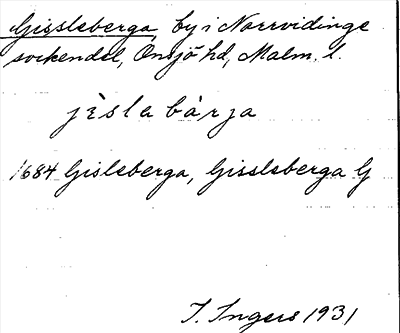 Gissleberga, by i Norrvidinge
sockendel, Onsjö hd, Malm. l.
jɛ̀slabàrja
1684 Gisleberga, Gissleberga G
I. Ingers 1931